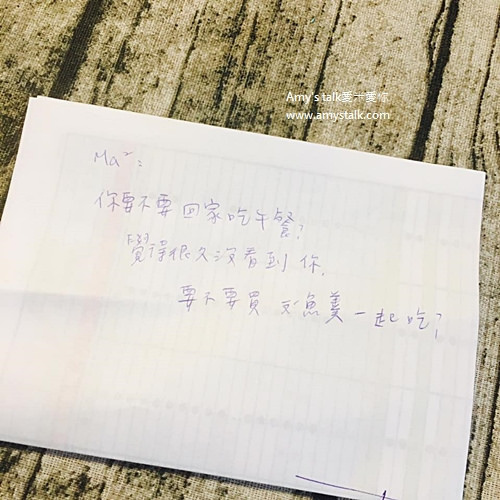 Amy's talk
www.amystalk.com
Ma²:
你要不要回家吃午餐?
覺得很久沒看到你.
要不要買 魚羹一起吃?